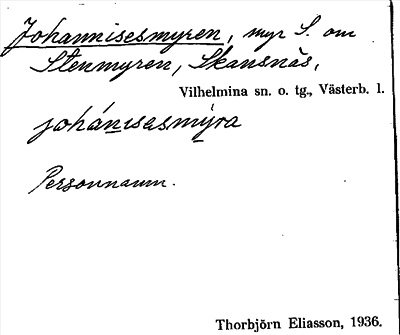 Johannisesmyren, myr S. om
Stenmyren, Skansnäs,
Vilhelmina sn. o. tg., Västerb. l.
johánisasmýra
Personnamn.
Thorbjörn Eliasson, 1936.